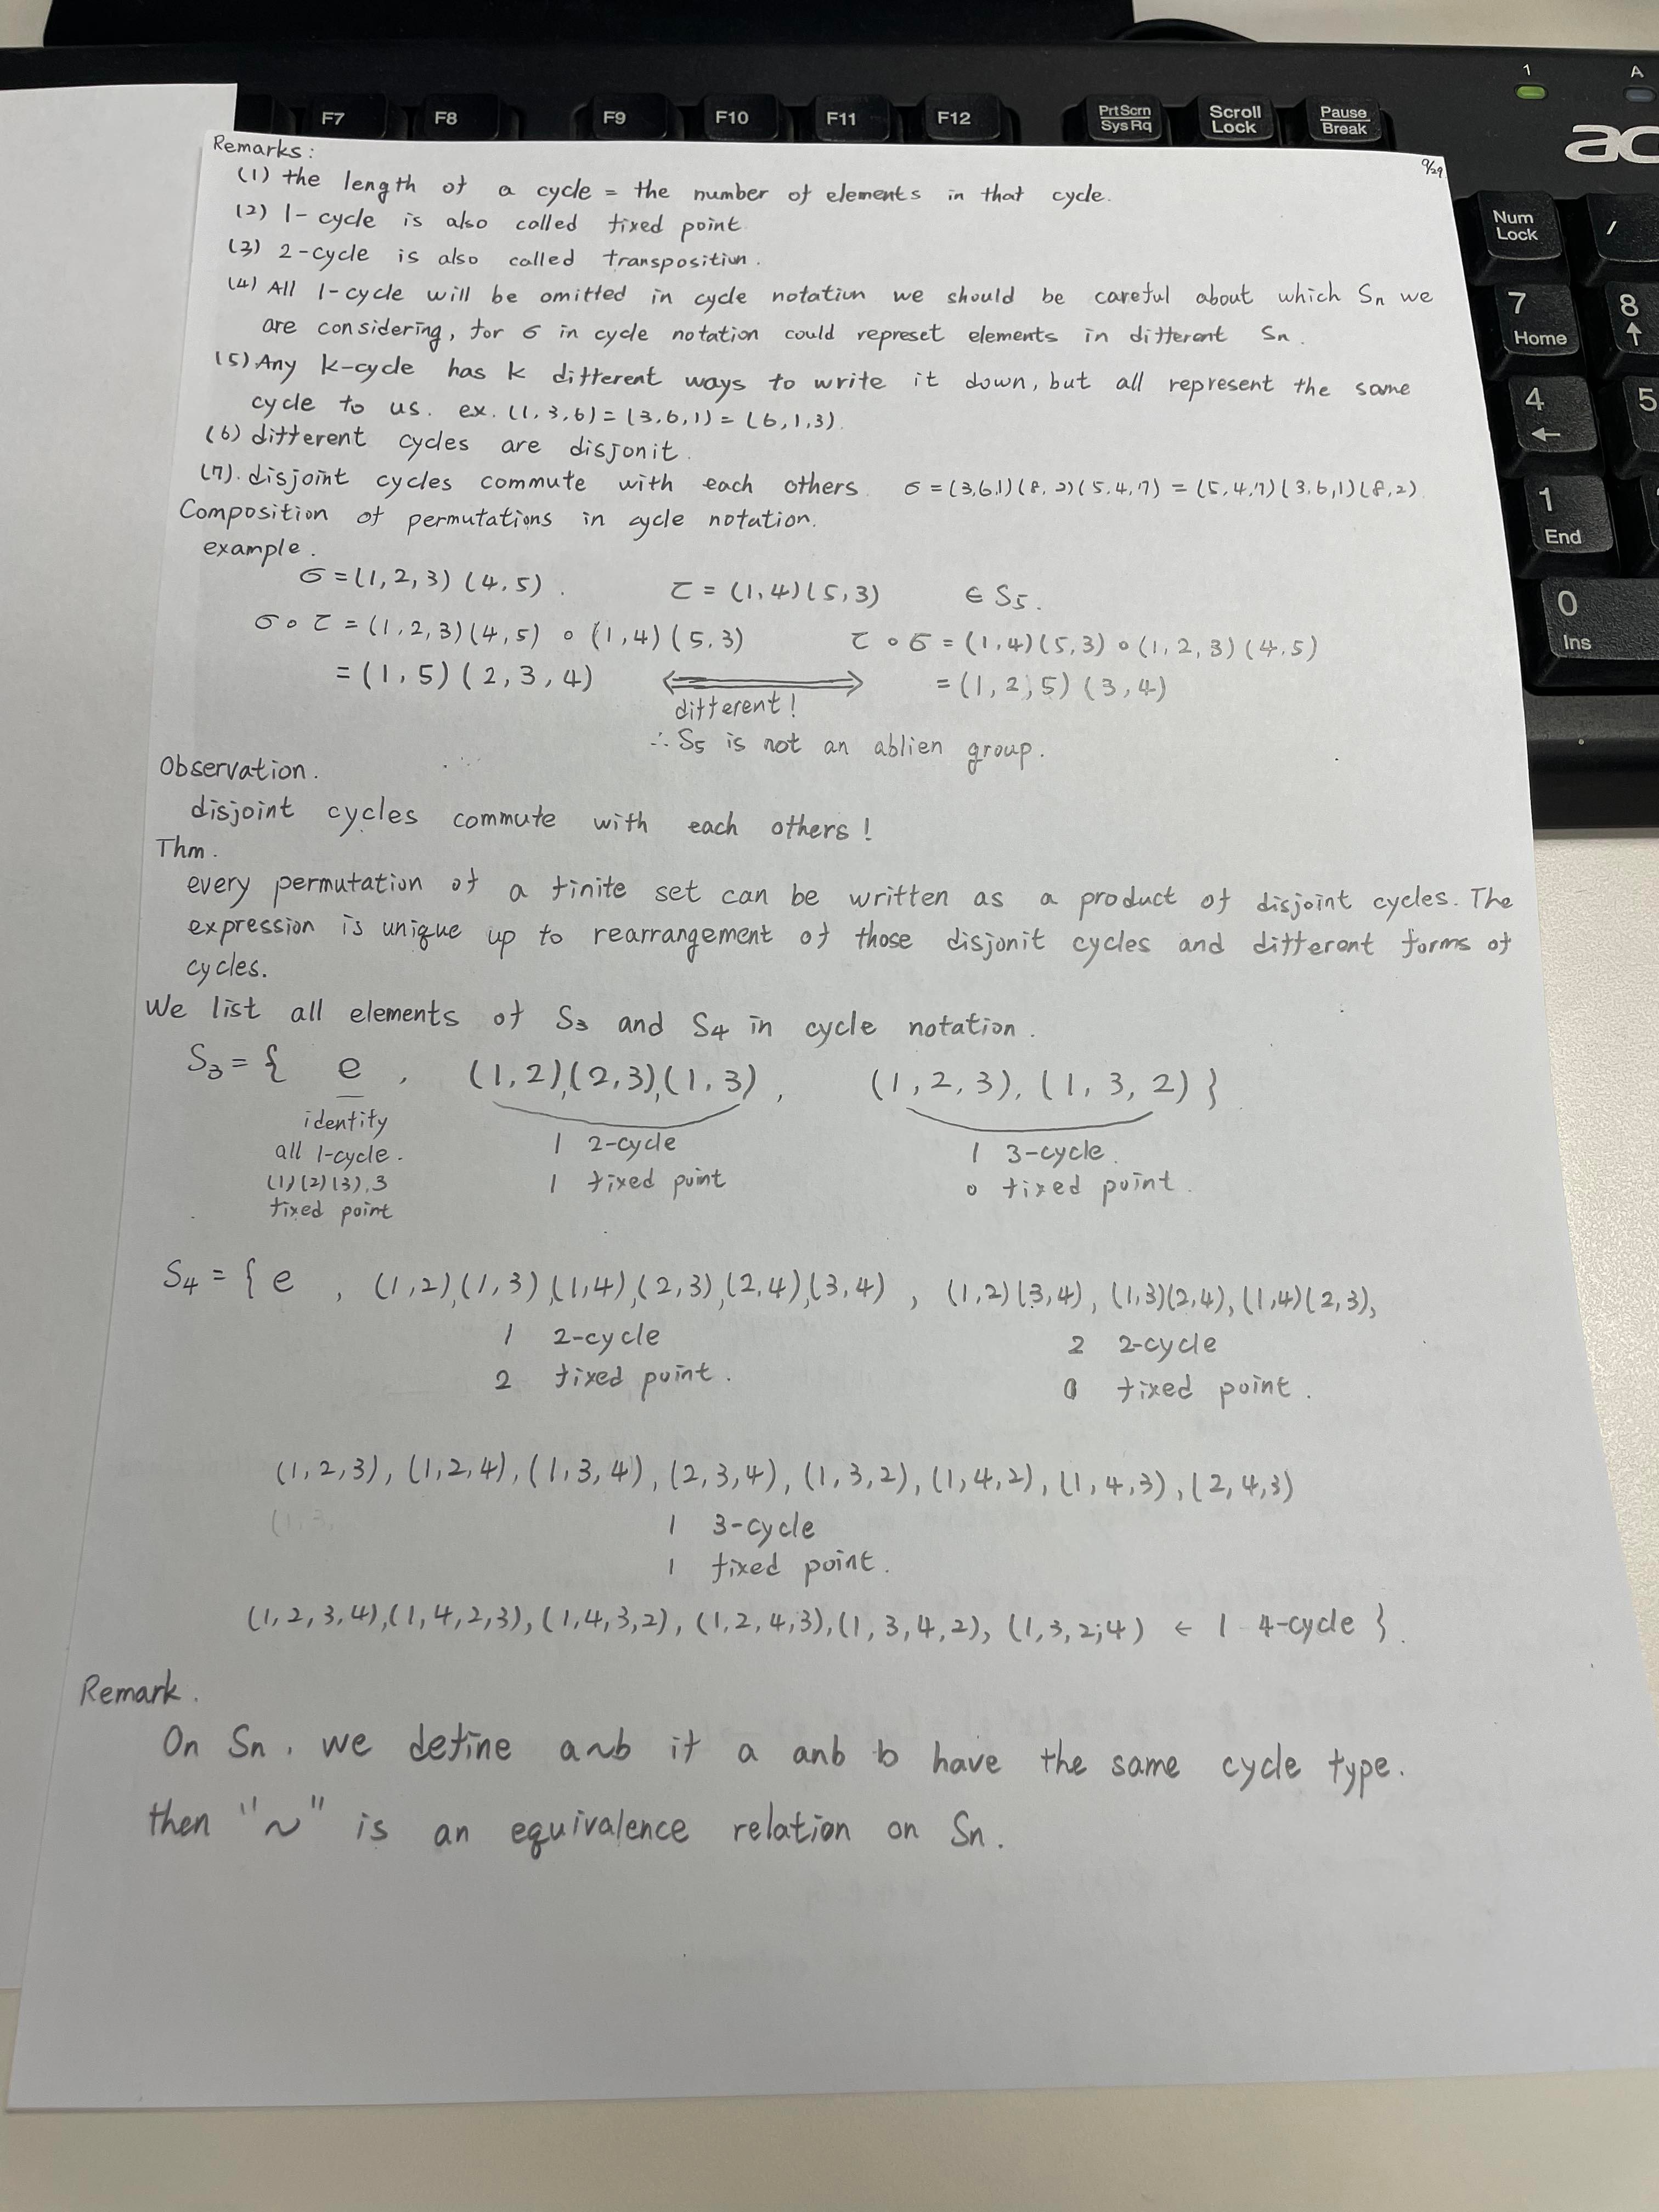 F7 F8 F9 F10 F11 F12 PrtScrn SysRq Scroll Lock Pause Break
1 A
ac
Num Lock /
7 Home 8
4 5
1 End
0 Ins
9/29
Remarks:
(1) the length of a cycle = the number of elements in that cycle.
(2) 1-cycle is also called fixed point
(3) 2-cycle is also called transposition.
(4) All 1-cycle will be omitted in cycle notation we should be careful about which Sn we
are considering, for σ in cycle notation could represet elements in different Sn.
(5) Any k-cycle has k different ways to write it down, but all represent the same
cycle to us. ex. (1,3,6)=(3,6,1)=(6,1,3).
(6) different cycles are disjonit.
(7). disjoint cycles commute with each others. σ=(3,6,1)(8,2)(5,4,7)=(5,4,7)(3,6,1)(8,2)
Composition of permutations in cycle notation.
example.
σ=(1,2,3)(4,5). τ=(1,4)(5,3) ∈ S5.
σ∘τ=(1,2,3)(4,5)∘(1,4)(5,3) τ∘σ=(1,4)(5,3)∘(1,2,3)(4,5)
=(1,5)(2,3,4) ⟺ =(1,2,5)(3,4)
different!
∴S5 is not an ablien group.
Observation.
disjoint cycles commute with each others!
Thm.
every permutation of a finite set can be written as a product of disjoint cycles. The
expression is unique up to rearrangement of those disjonit cycles and different forms of
cycles.
We list all elements of S3 and S4 in cycle notation.
S3={ e , (1,2),(2,3),(1,3), (1,2,3),(1,3,2)}
identity
all 1-cycle. 1 2-cycle 1 3-cycle.
(1)(2)(3).3 1 fixed point 0 fixed point.
fixed point
S4={ e , (1,2),(1,3),(1,4),(2,3),(2,4),(3,4), (1,2)(3,4),(1,3)(2,4),(1,4)(2,3),
1 2-cycle 2 2-cycle
2 fixed point. 0 fixed point.
(1,2,3),(1,2,4),(1,3,4),(2,3,4),(1,3,2),(1,4,2),(1,4,3),(2,4,3)
(1,3,
1 3-cycle
1 fixed point.
(1,2,3,4),(1,4,2,3),(1,4,3,2),(1,2,4,3),(1,3,4,2),(1,3,2,4) ← 1 4-cycle }.
Remark.
On Sn, we define a~b if a anb b have the same cycle type.
then "~" is an equivalence relation on Sn.